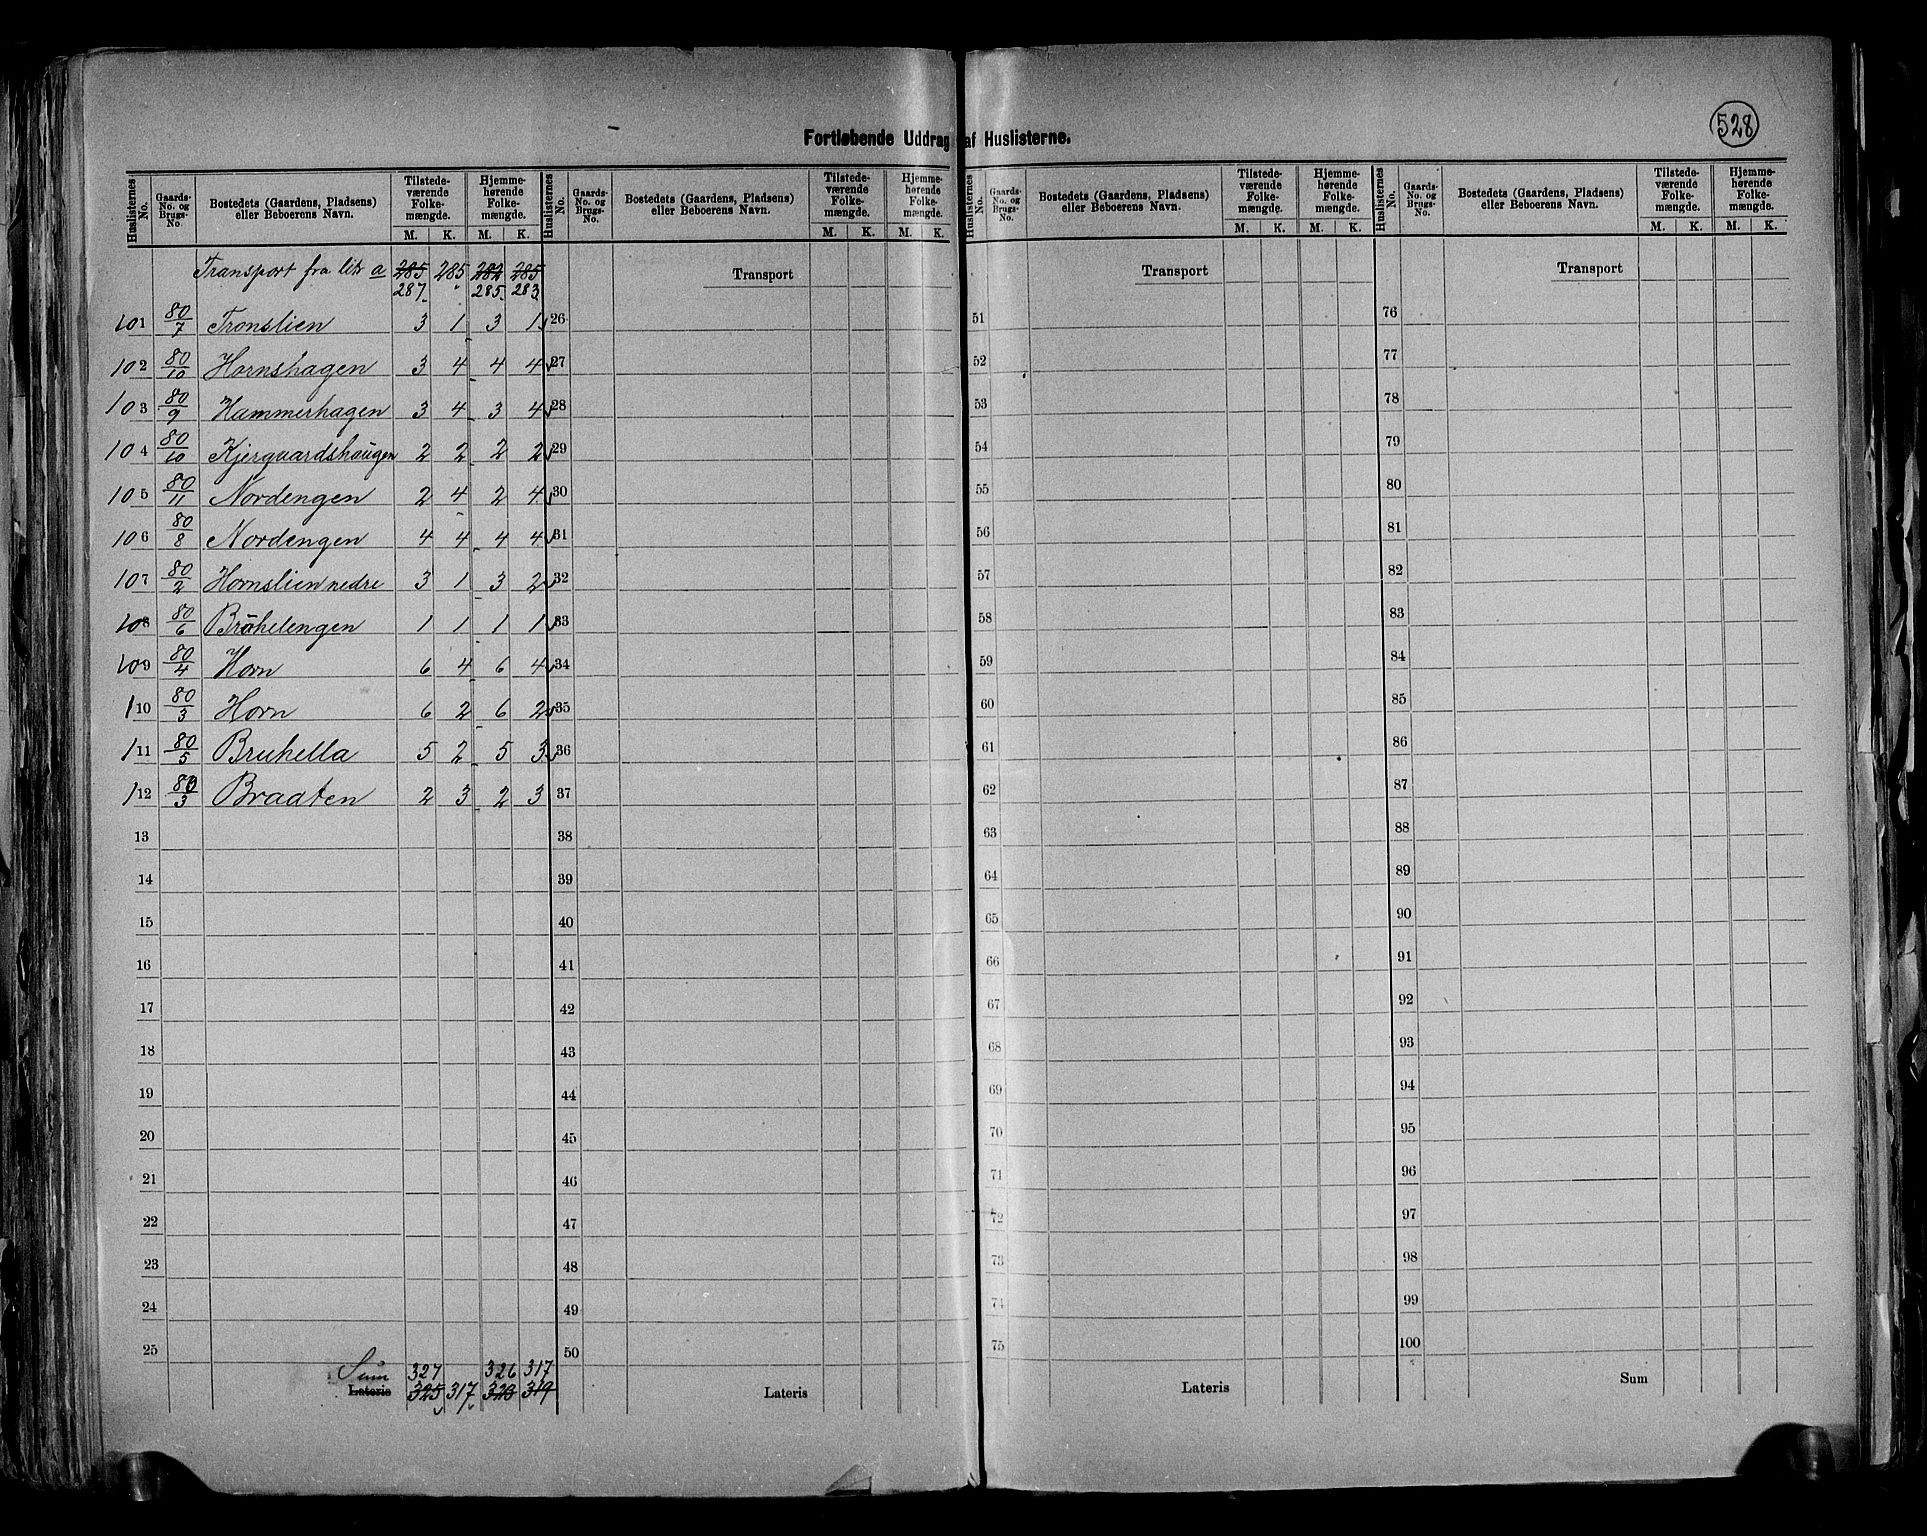 528
Fortløbende Uddrag af Huslisterne.
Huslisternes No. | Gaards-No. og Brugs-No. | Bostedets (Gaardens, Pladsens) eller Beboerens Navn. | Tilstedeværende Folkemængde. M. K. | Hjemmehørende Folkemængde. M. K.
Transport fra litr a 285 285 282 285
287 285 283
101 80/7 Tronslien 3 1 3 1
102 80/10 Hornshagen 3 4 4 4
103 80/9 Hammerhagen 3 4 3 4
104 80/10 Kjerguardshougen 2 2 2 2
105 80/11 Nordengen 2 4 2 4
106 80/8 Nordengen 4 4 4 4
107 80/2 Hornslien nedre 3 1 3 2
108 80/6 Bröhelengen 1 1 1 1
109 80/4 Horn 6 4 6 4
110 80/3 Horn 6 2 6 2
111 80/5 Bruhella 5 2 5 3
112 80/3 Braaten 2 3 2 3
13
14
15
16
17
18
19
20
21
22
23
24
25
Sum 327 326 317
Lateris 325 317 320 319
Huslisternes No. | Gaards-No. og Brugs-No. | Bostedets (Gaardens, Pladsens) eller Beboerens Navn. | Tilstedeværende Folkemængde. M. K. | Hjemmehørende Folkemængde. M. K.
Transport
26
27
28
29
30
31
32
33
34
35
36
37
38
39
40
41
42
43
44
45
46
47
48
49
50
Lateris
Huslisternes No. | Gaards-No. og Brugs-No. | Bostedets (Gaardens, Pladsens) eller Beboerens Navn. | Tilstedeværende Folkemængde. M. K. | Hjemmehørende Folkemængde. M. K.
Transport
51
52
53
54
55
56
57
58
59
60
61
62
63
64
65
66
67
68
69
70
71
72
73
74
75
Lateris
Huslisternes No. | Gaards-No. og Brugs-No. | Bostedets (Gaardens, Pladsens) eller Beboerens Navn. | Tilstedeværende Folkemængde. M. K. | Hjemmehørende Folkemængde. M. K.
Transport
76
77
78
79
80
81
82
83
84
85
86
87
88
89
90
91
92
93
94
95
96
97
98
99
100
Sum